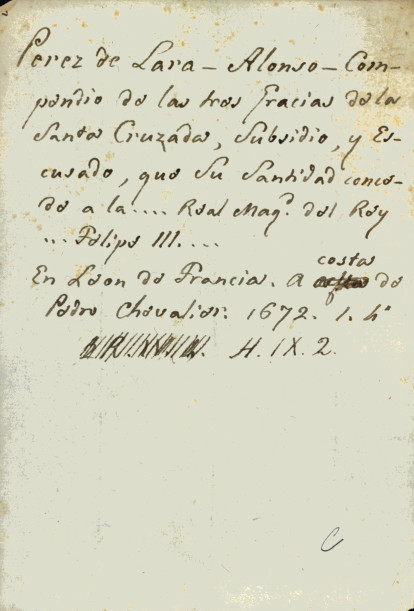 Perez de Lara - Alonso - Com-
pendio de las tres Gracias de la
Santa Cruzada, Subsidio, y Es-
cusado, que Su Santidad conce-
de a la .... Real Mag.d del Rey
... Felipe III. ....
costas
En Leon de Francia. A de
Pedro Chevalier. 1672. 1. hº
H. IX. 2.
C